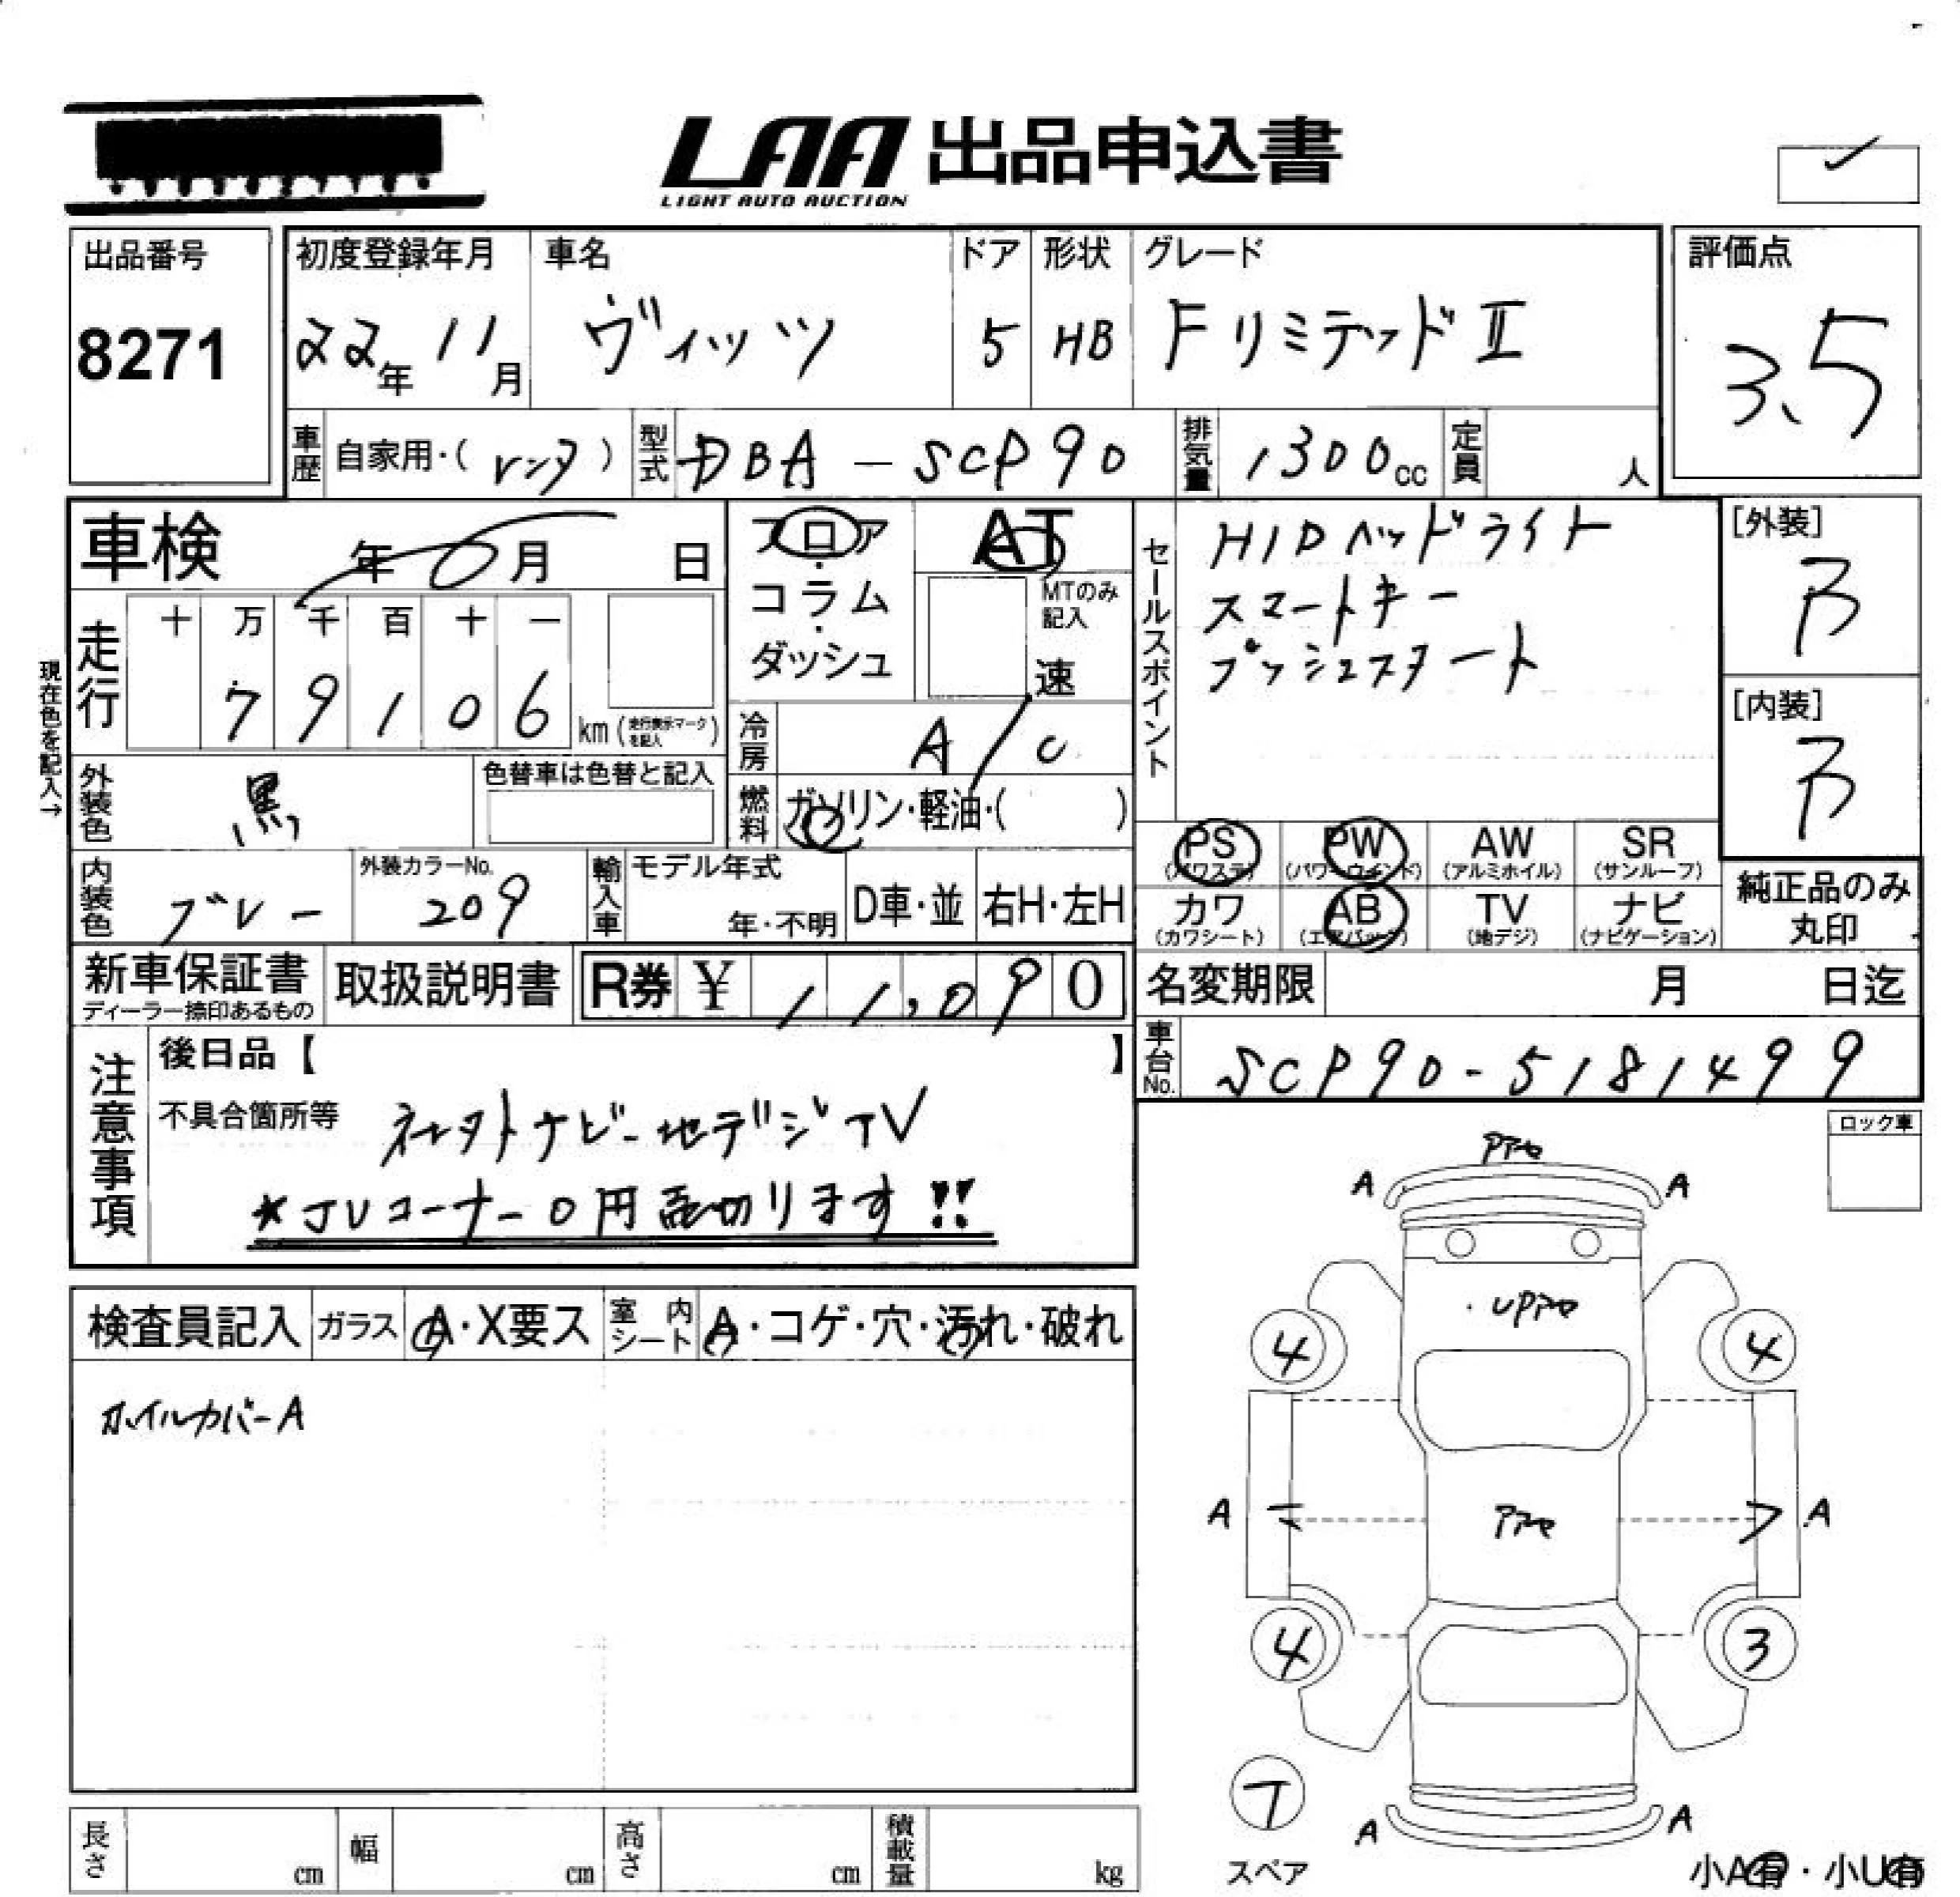 LAA 出品申込書
LIGHT AUTO AUCTION
出品番号
8271
初度登録年月
22年 11月
車名
ヴィッツ
ドア
5
形状
HB
グレード
FリミテッドⅡ
評価点
3.5
車歴 自家用・(レンタ)
型式 DBA-SCP90
排気量 1300cc
定員 人
車検 年 0月 日
走行 十 万 千 百 十 一
79106 km (走行表示マークを記入)
現在色を記入→
フロア・コラム・ダッシュ
AT
MTのみ記入
速
冷房 A/C
燃料 ガソリン・軽油・( )
セールスポイント
HIDヘッドライト
スマートキー
プッシュスタート
[外装]
B
[内装]
B
外装色 黒
色替車は色替と記入
内装色 グレー
外装カラーNo.
209
輸入車 モデル年式
年・不明
D車・並
右H・左H
PS (パワステ)
PW (パワーウインド)
AW (アルミホイル)
SR (サンルーフ)
カワ (カワシート)
AB (エアバック)
TV (地デジ)
ナビ (ナビゲーション)
純正品のみ
丸印
新車保証書
ディーラー捺印あるもの
取扱説明書
R券 ¥ 11,090
名変期限 月 日迄
車台No. SCP90-5181499
注意事項
後日品【 】
不具合箇所等
ネクストナビー地デジTV
*JUコーナー0円売切ります!!
ロック車
検査員記入
ガラス A・X要ス
室内シート A・コゲ・穴・汚れ・破れ
ホイルカバーA
A アアセ A
・Uアアセ
4 4
A アアセ A
4 3
7
スペア
A A
小A有・小U有
長さ cm
幅 cm
高さ cm
積載量 kg